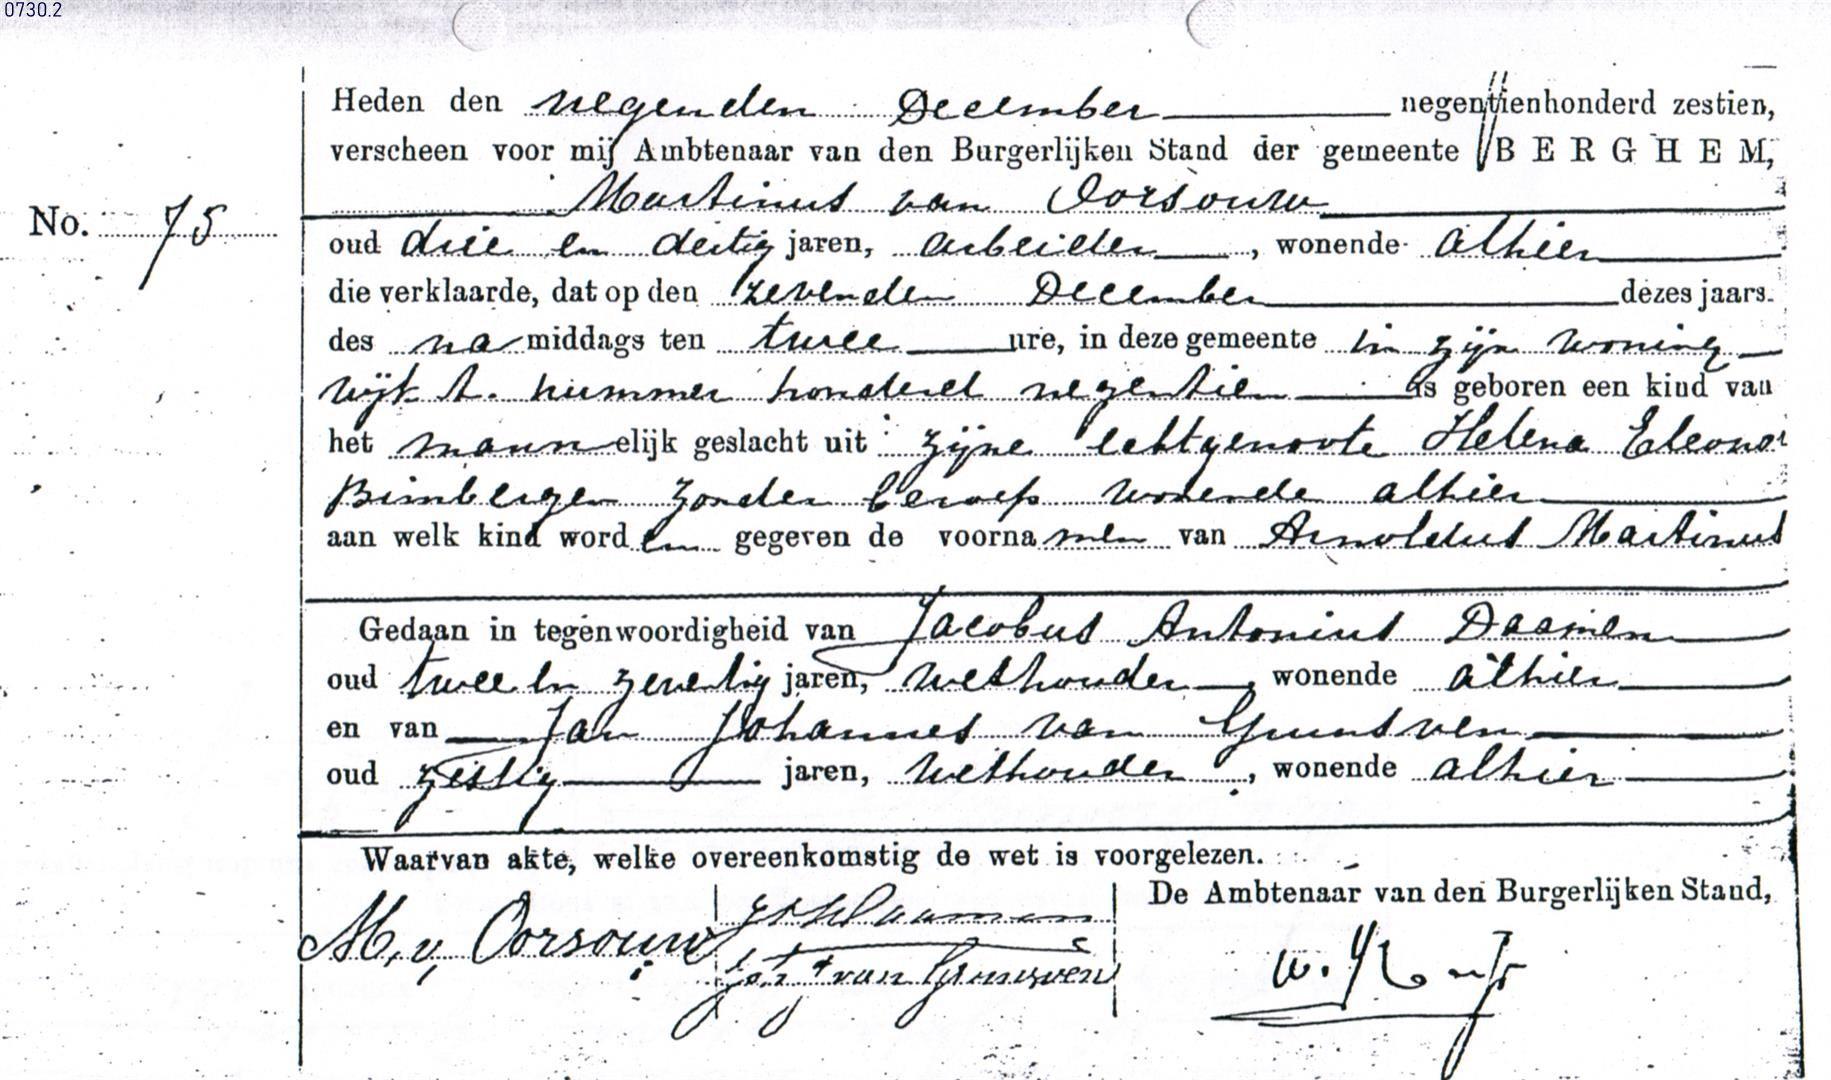 0730.2
Heden den negenden December negentienhonderd zestien,
verscheen voor mij Ambtenaar van den Burgerlijken Stand der gemeente BERGHEM,
Martinus van Oorsouw
No. 75
oud drie en dertig jaren, arbeider, wonende alhier
die verklaarde, dat op den zevenden December dezes jaars.
des na middags ten twee ure, in deze gemeente in zijn woning
wijk A. nummer honderd negentien is geboren een kind van
het mannelijk geslacht uit zijne echtgenoote Helena Eleonor
Bimbergen zonder beroep wonende alhier
aan welk kind worden gegeven de voornamen van Arnoldus Martinus
Gedaan in tegenwoordigheid van Jacobus Antonius Daamen
oud twee en zeventig jaren, wethouder, wonende alhier
en van Jan Johannes van Grunsven
oud zestig jaren, wethouder, wonende alhier
Waarvan akte, welke overeenkomstig de wet is voorgelezen.
De Ambtenaar van den Burgerlijken Stand,
M. v. Oorsouw
Daamen
van Grunsven
W.